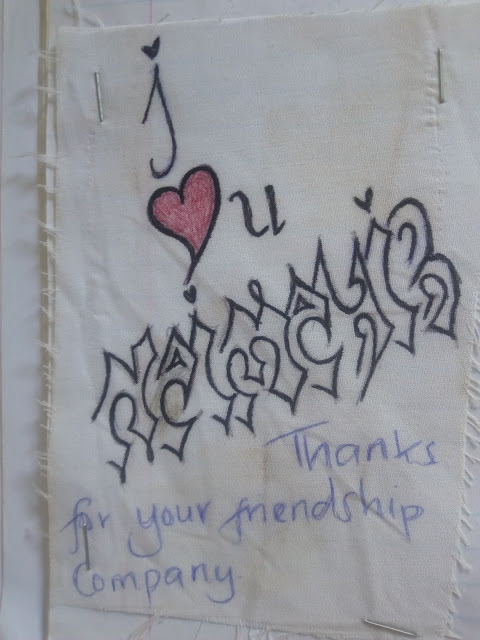 i
u
Thanks
for your friendship
Company